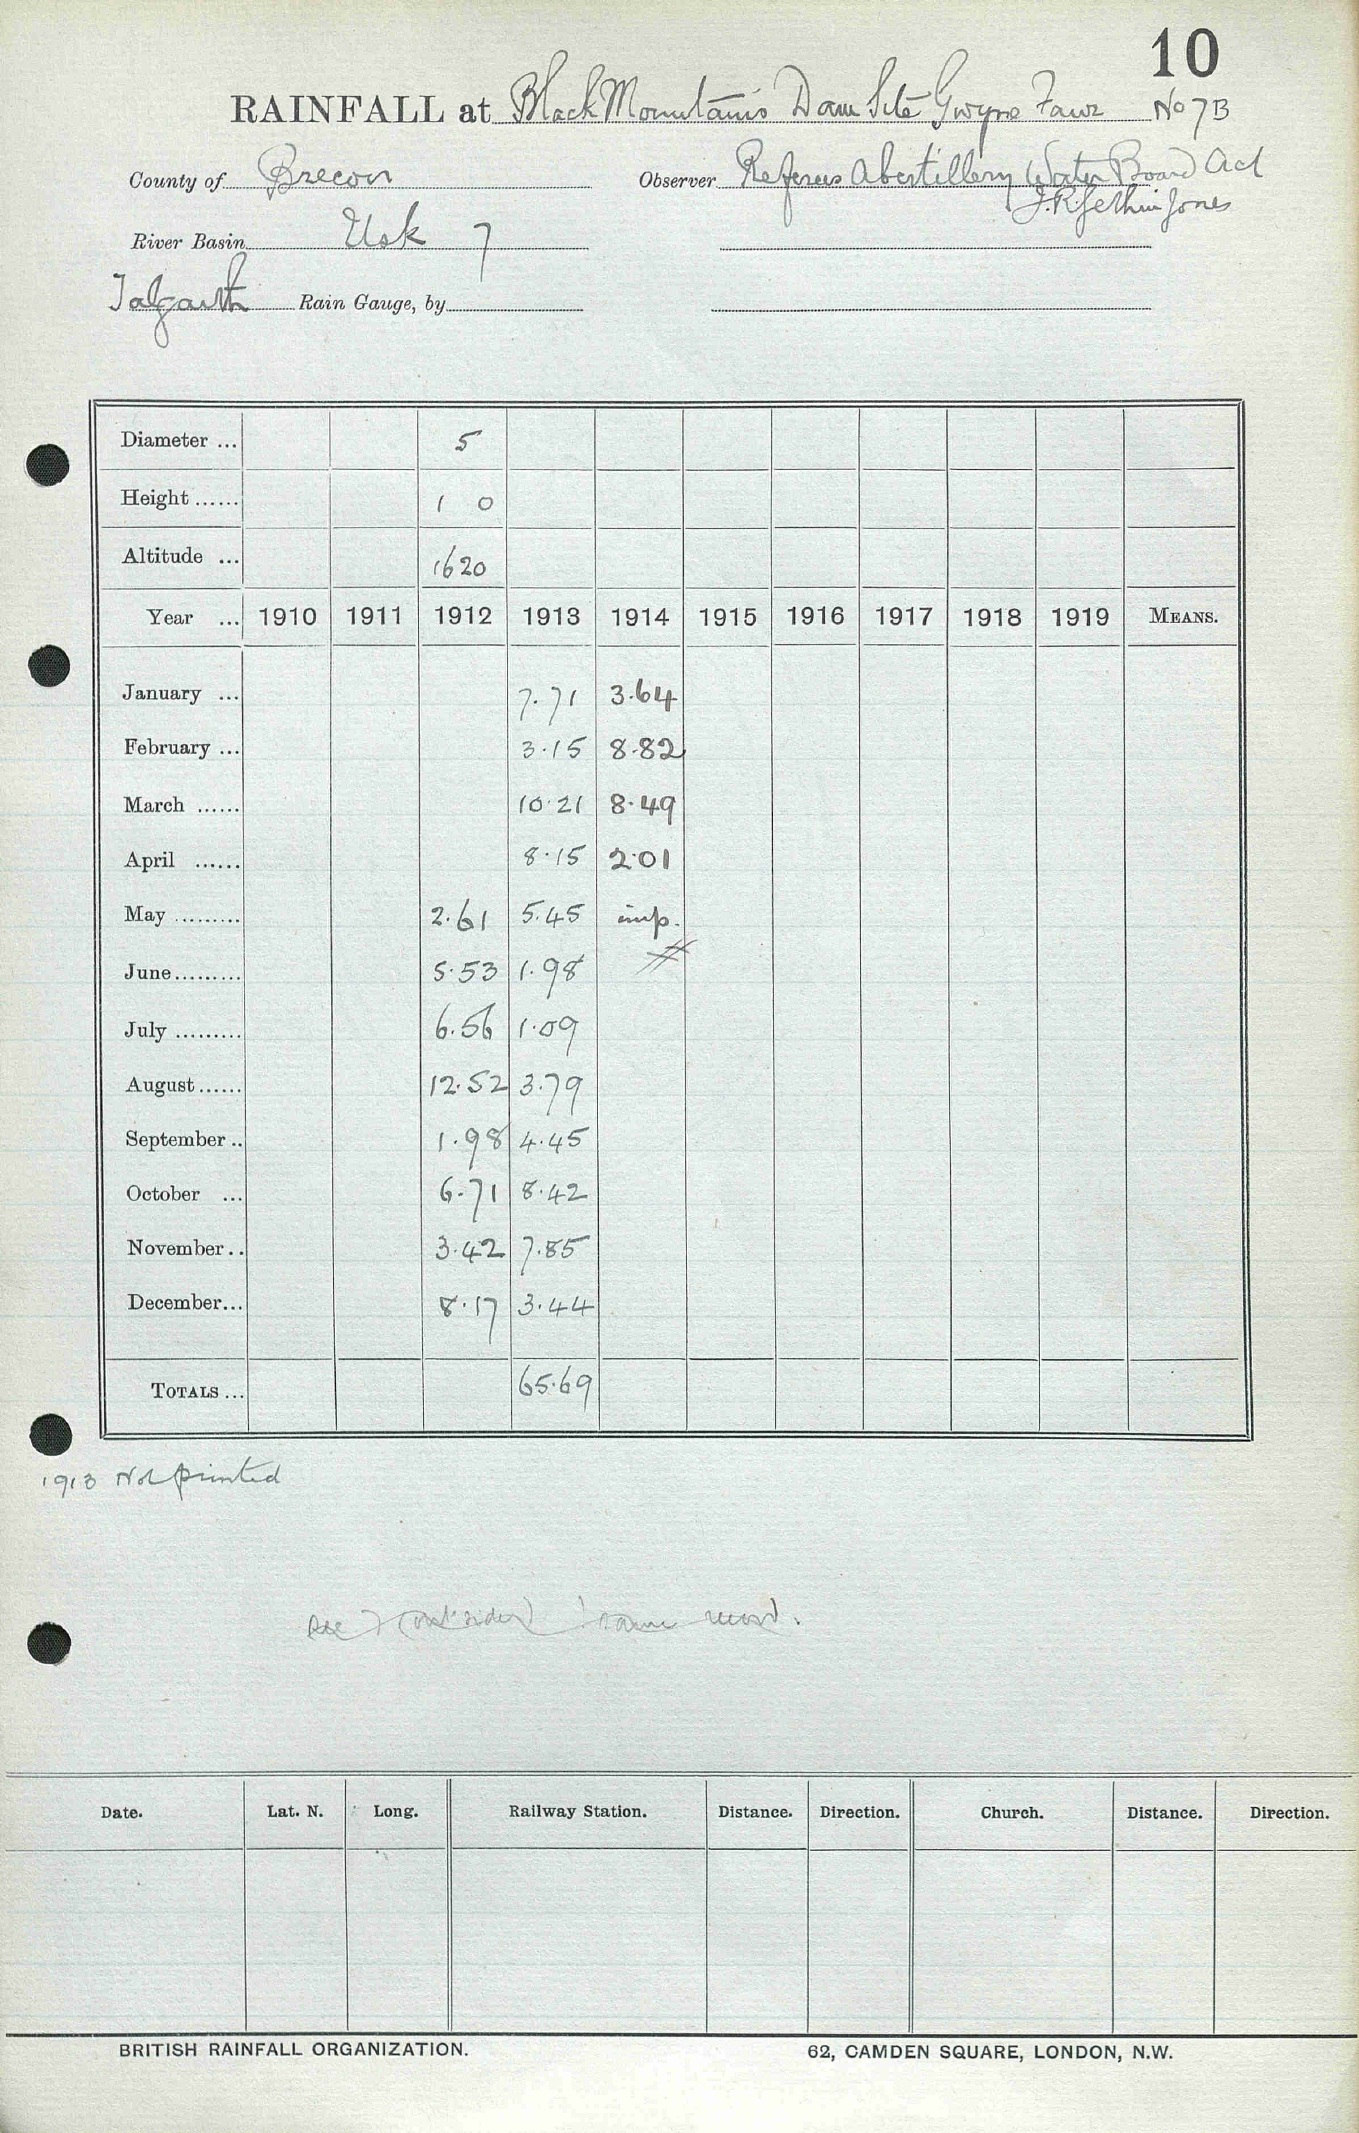 10
RAINFALL at Black Mountains Dam Site Gwyne Fawr No 7B
County of Brecon Observer Referees Abertillery Water Board Act
J.R. Gethin Jones
River Basin Usk 7
Talgarth Rain Gauge, by
Diameter ... 5
Height ...... 1 0
Altitude ... 1620
Year ... 1910 1911 1912 1913 1914 1915 1916 1917 1918 1919 MEANS.
January ... 7.71 3.64
February ... 3.15 8.82
March ...... 10.21 8.49
April ...... 8.15 2.01
May ......... 2.61 5.45 imp.
June......... 5.53 1.98
July ......... 6.56 1.09
August...... 12.52 3.79
September .. 1.98 4.45
October ... 6.71 8.42
November.. 3.42 7.85
December... 8.17 3.44
TOTALS ... 65.69
1913 Not printed
see same
Date. Lat. N. Long. Railway Station. Distance. Direction. Church. Distance. Direction.
BRITISH RAINFALL ORGANIZATION. 62, CAMDEN SQUARE, LONDON, N.W.